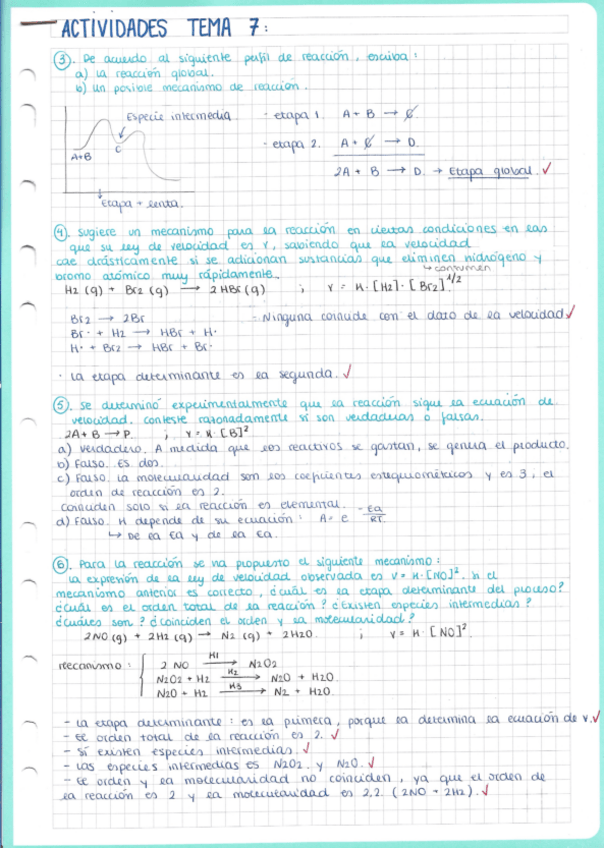 ACTIVIDADES TEMA 7:
③. De acuerdo al siguiente perfil de reacción, escriba:
a) La reacción global.
b) Un posible mecanismo de reacción.
Especie intermedia
A+B
C
Etapa + lenta.
- etapa 1. A + B → C.
- etapa 2. A + C → D.
2A + B → D. → Etapa global. ✓
④. Sugiere un mecanismo para la reacción en ciertas condiciones en las
que su ley de velocidad es v, sabiendo que la velocidad
cae drásticamente si se adicionan sustancias que eliminen hidrógeno y
bromo atómico muy rápidamente.
↳ consumen
H2 (g) + Br2 (g) → 2HBr (g) ; v = K · [H2] · [Br2]^1/2.
Br2 → 2Br
Br· + H2 → HBr + H·
H· + Br2 → HBr + Br·
- Ninguna coincide con el dato de la velocidad ✓
· La etapa determinante es la segunda. ✓
⑤. Se determinó experimentalmente que la reacción sigue la ecuación de
velocidad. Conteste razonadamente si son verdaderas o falsas.
2A + B → P. ; v = K · [B]²
a) Verdadero. A medida que los reactivos se gastan, se genera el producto.
b) Falso. Es dos.
c) Falso. La molecularidad son los coeficientes estequiométricos y es 3, el
orden de reacción es 2.
Coinciden solo si la reacción es elemental.
d) Falso. K depende de su ecuación: A = e -Ea/RT.
↳ De la Ea y de la Ea.
⑥. Para la reacción se ha propuesto el siguiente mecanismo:
La expresión de la ley de velocidad observada es v = K · [NO]². Si el
mecanismo anterior es correcto, ¿cuál es la etapa determinante del proceso?
¿Cuál es el orden total de la reacción? ¿Existen especies intermedias?
¿Cuáles son? ¿Coinciden el orden y la molecularidad?
2NO (g) + 2H2 (g) → N2 (g) + 2H2O. ; v = K · [NO]².
Mecanismo:
2 NO K1→ N2O2
N2O2 + H2 K2→ N2O + H2O
N2O + H2 K3→ N2 + H2O
- La etapa determinante: es la primera, porque la determina la ecuación de v. ✓
- El orden total de la reacción es 2. ✓
- Sí existen especies intermedias. ✓
- Las especies intermedias es N2O2 y N2O. ✓
- El orden y la molecularidad no coinciden, ya que el orden de
la reacción es 2 y la molecularidad es 2,2. (2NO + 2H2). ✓